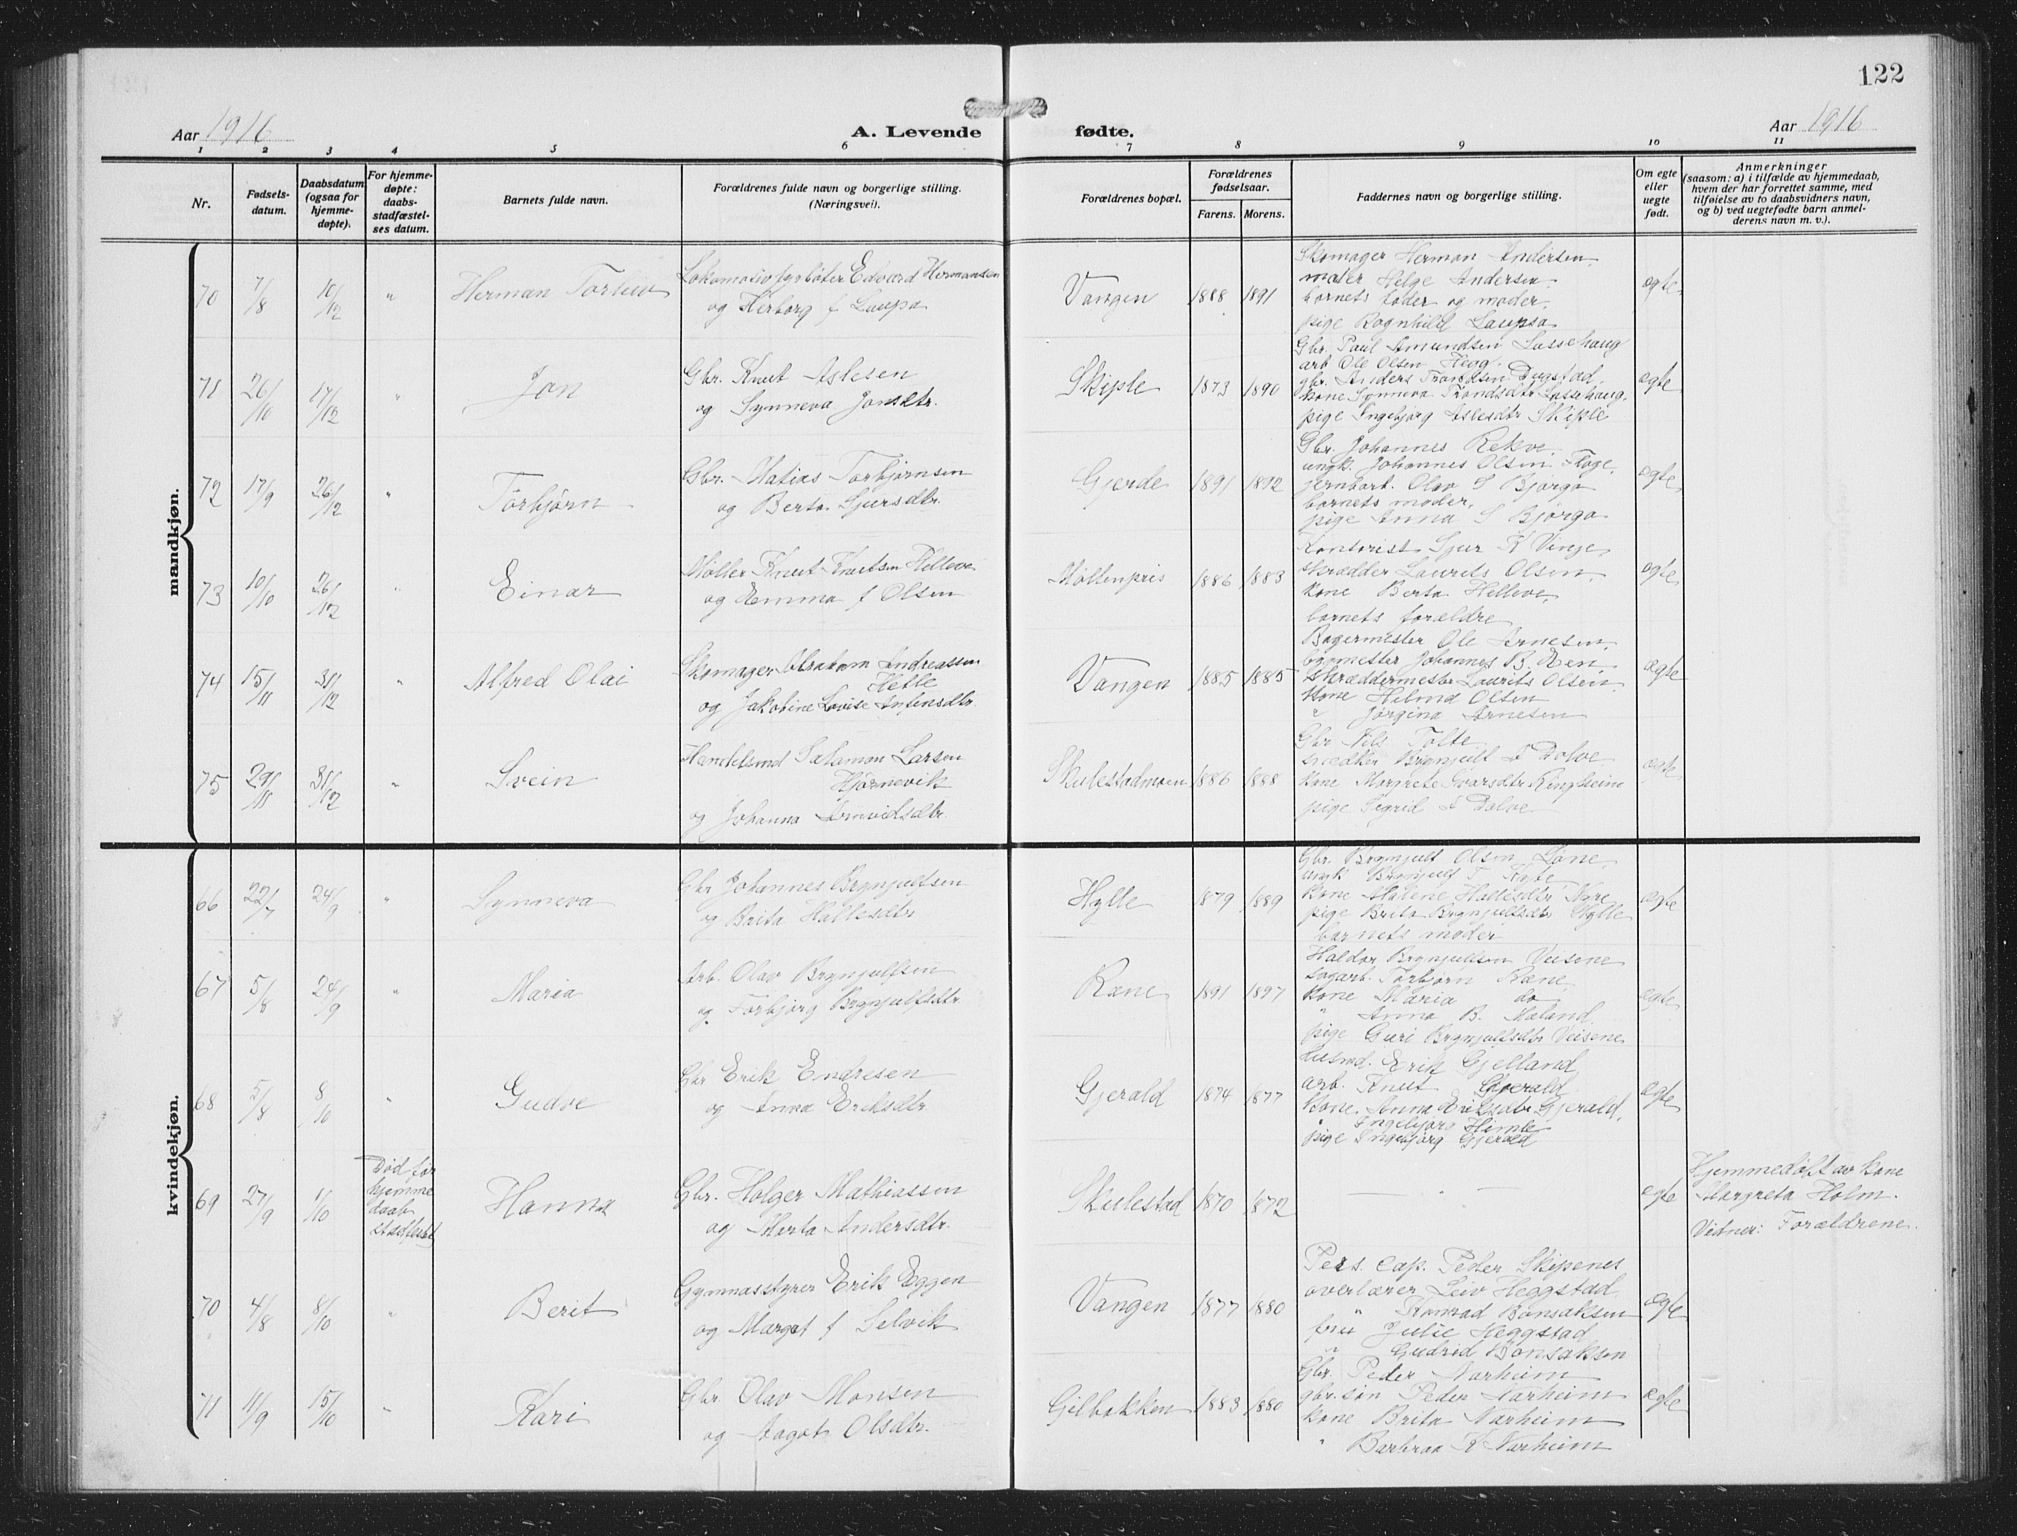 122
Aar 1916
A. Levende
fødte.
Aar 1916
1 2 3 4 5 6 7 8 9 10 11
Nr.
Fødsels-
datum.
Daabsdatum
(ogsaa for
hjemme-
døpte).
For hjemme-
døpte:
daabs-
stadfæstel-
ses datum.
Barnets fulde navn.
Forældrenes fulde navn og borgerlige stilling.
(Næringsvei).
Forældrenes bopæl.
Forældrenes
fødselsaar.
Farens. Morens.
Faddernes navn og borgerlig stilling.
Om egte
eller
uegte
født.
Anmerkninger
(saasom: a) i tilfælde av hjemmedaab,
hvem der har forrettet samme, med
tilføielse av to daabsvidners navn,
og b) ved uegtefødte barn anmel-
derens navn m. v.).
mandkjøn.
70 7/8 10/12 " Herman Torleiv
Lokomotivfyrbøter Edvard Hermansen
og Herborg f Laupsa
Vangen 1888 1891
Skomager Herman Andersen,
maler Helge Andersen
barnets fader og moder,
pige Ragnhild Laupsa
egte
71 26/10 17/12 " Jon
Gbr. Knut Aslesen
og Synneva Jonsdtr.
Skiple 1873 1890
Gbr. Paul Amundsen Lassehaug
arb Ole Olsen Hegg.
gbr. Anders Trondsen Dugstad,
kone Synneva Trondsdtr Lassehaug,
pige Ingebjørg Aslesdtr Skiple
egte
72 17/9 26/12 " Torbjørn
Gbr. Matias Torbjørnsen
og Berta Sjursdtr.
Gjerde 1891 1892
Gbr. Johannes Rekve,
ungk. Johannes Olsen Flage,
jernbarb. Olav S Bjørgo
barnets moder,
pige Anna S Bjørgo
egte
73 10/10 26/12 " Einar
Møller Knut Knutsen Helleve
og Emma f Olsen
Møllenpris 1886 1883
Kontorist Sjur K Vinje,
skrædder Laurits Olsen,
kone Berta Helleve,
barnets forældre
egte
74 15/11 31/12 " Alfred Olai
Skomager Abraham Andreassen
Helle
og Jakobine Lovise Antensdtr
Vangen 1885 1885
Bagermester Ole Arnesen,
bygmester Johannes B. Øen
skræddermester Laurits Olsen,
kone Helmd Olsen
" Jørgina Arnesen
egte
75 29/11 31/12 " Svein
Handelsmd Salamon Larsen
Hjørnevik
og Johanna Arnvidsdtr.
Skulestadmoen 1886 1888
Gbr Nils Tolte,
snedker Brynjulf I Dolve
kone Margrete Ivarsdtr Ringheim
pige Sigrid I Dolve
egte
kvindekjøn.
66 22/7 24/9 " Synneva
Gbr Johannes Brynjulfsen
og Brita Hallesdtr
Hylle 1879 1889
Gbr. Brynjulf Olsen Lone,
ungk Brynjulf T Tofte
kone Malene Hallesdtr Lone
pige Brita Brynjulfsdtr Hylle
barnets moder
egte
67 5/8 24/9 " Maria
Arb. Olav Brynjulfsen
og Torbjørg Brynjulfsdtr
Rene 1891 1897
Haldor Brynjulfsen Veisene
sagarb. Torbjørn Rene
kone Maria do
" Anna B. Maland
pige Guri Brynjulfsdtr Veisene
egte
68 5/8 8/10 " Gudve
Gbr Erik Endresen
og Anna Eriksdtr
Gjerald 1874 1877
Husmd. Erik Gjelland,
arb. Knut Gjerald
kone. Anna Eriksdtr Gjerald,
" Ingebjørg Himle
pige Ingebjørg Gjerald
egte
69 27/9 1/10
Død før
hjemme
daab
stadfestet
Hanna
Gbr. Holger Mathiassen
og Marta Andersdtr.
Skulestad 1870 1872
— " —
egte
Hjemmedøpt av kone
Margreta Holm.
Vidner: Forældrene.
70 4/8 8/10 " Berit
Gymnasstyrer Erik Eggen
og Margot f Selvik
Vangen 1877 1880
Pers. Cap. Peder Skipenes
overlærer Leiv Heggstad
" Konrad Bonsaksen
frue Julie Heggstad
" Gudrid Bonsaksen
egte
71 11/9 15/10 " Kari
Gbr Olav Monsen
og Aagot Olsdtr.
Gilbakken 1883 1880
Gbr. Peder Narheim
gbr.søn Peder Narheim
kone Brita Narheim
" Barbraa K Narheim
egte